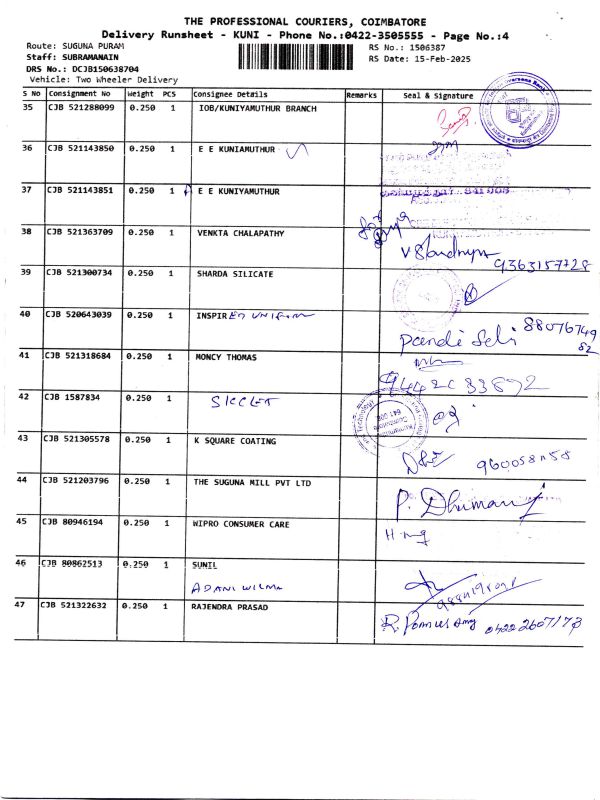 THE PROFESSIONAL COURIERS, COIMBATORE
Delivery Runsheet - KUNI - Phone No.:0422-3505555 - Page No.:4
Route: SUGUNA PURAM
RS No.: 1506387
Staff: SUBRAMANAIN
RS Date: 15-Feb-2025
DRS No.: DCJB150638704
Vehicle: Two Wheeler Delivery
S No Consignment No Weight PCS Consignee Details Remarks Seal & Signature
35 CJB 521288099 0.250 1 IOB/KUNIYAMUTHUR BRANCH
36 CJB 521143850 0.250 1 E E KUNIAMUTHUR
37 CJB 521143851 0.250 1 E E KUNIYAMUTHUR
38 CJB 521363709 0.250 1 VENKTA CHALAPATHY
9363157728
39 CJB 521300734 0.250 1 SHARDA SILICATE
40 CJB 520643039 0.250 1 INSPIRED UNIFORM
Pandi Selvi 8807674982
41 CJB 521318684 0.250 1 MONCY THOMAS
42 CJB 1587834 0.250 1
43 CJB 521305578 0.250 1 K SQUARE COATING
44 CJB 521203796 0.250 1 THE SUGUNA MILL PVT LTD
P. Dhiman
45 CJB 80946194 0.250 1 WIPRO CONSUMER CARE
46 CJB 80862513 0.250 1 SUNIL
ADANI WILMA
47 CJB 521322632 0.250 1 RAJENDRA PRASAD
0422 2607173